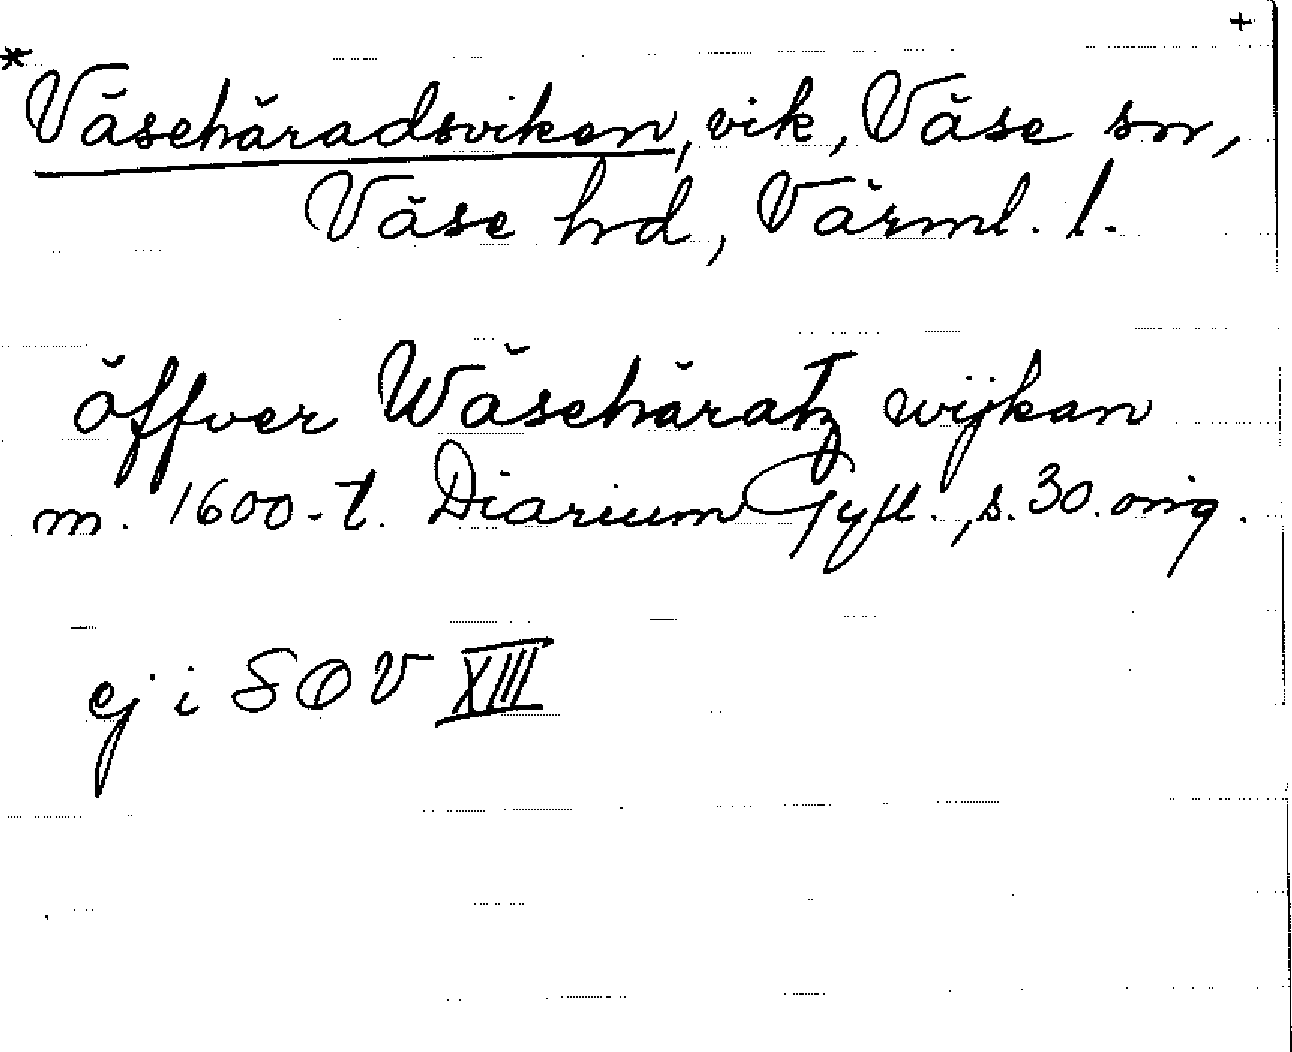 +
* Väsehäradsviken, vik, Väse sn,
Väse hd, Värml. l.
öffver Wäsehäratz wijkan
m. 1600-t. Diarium Gyll., s. 30. orig.
ej i SOV XIII